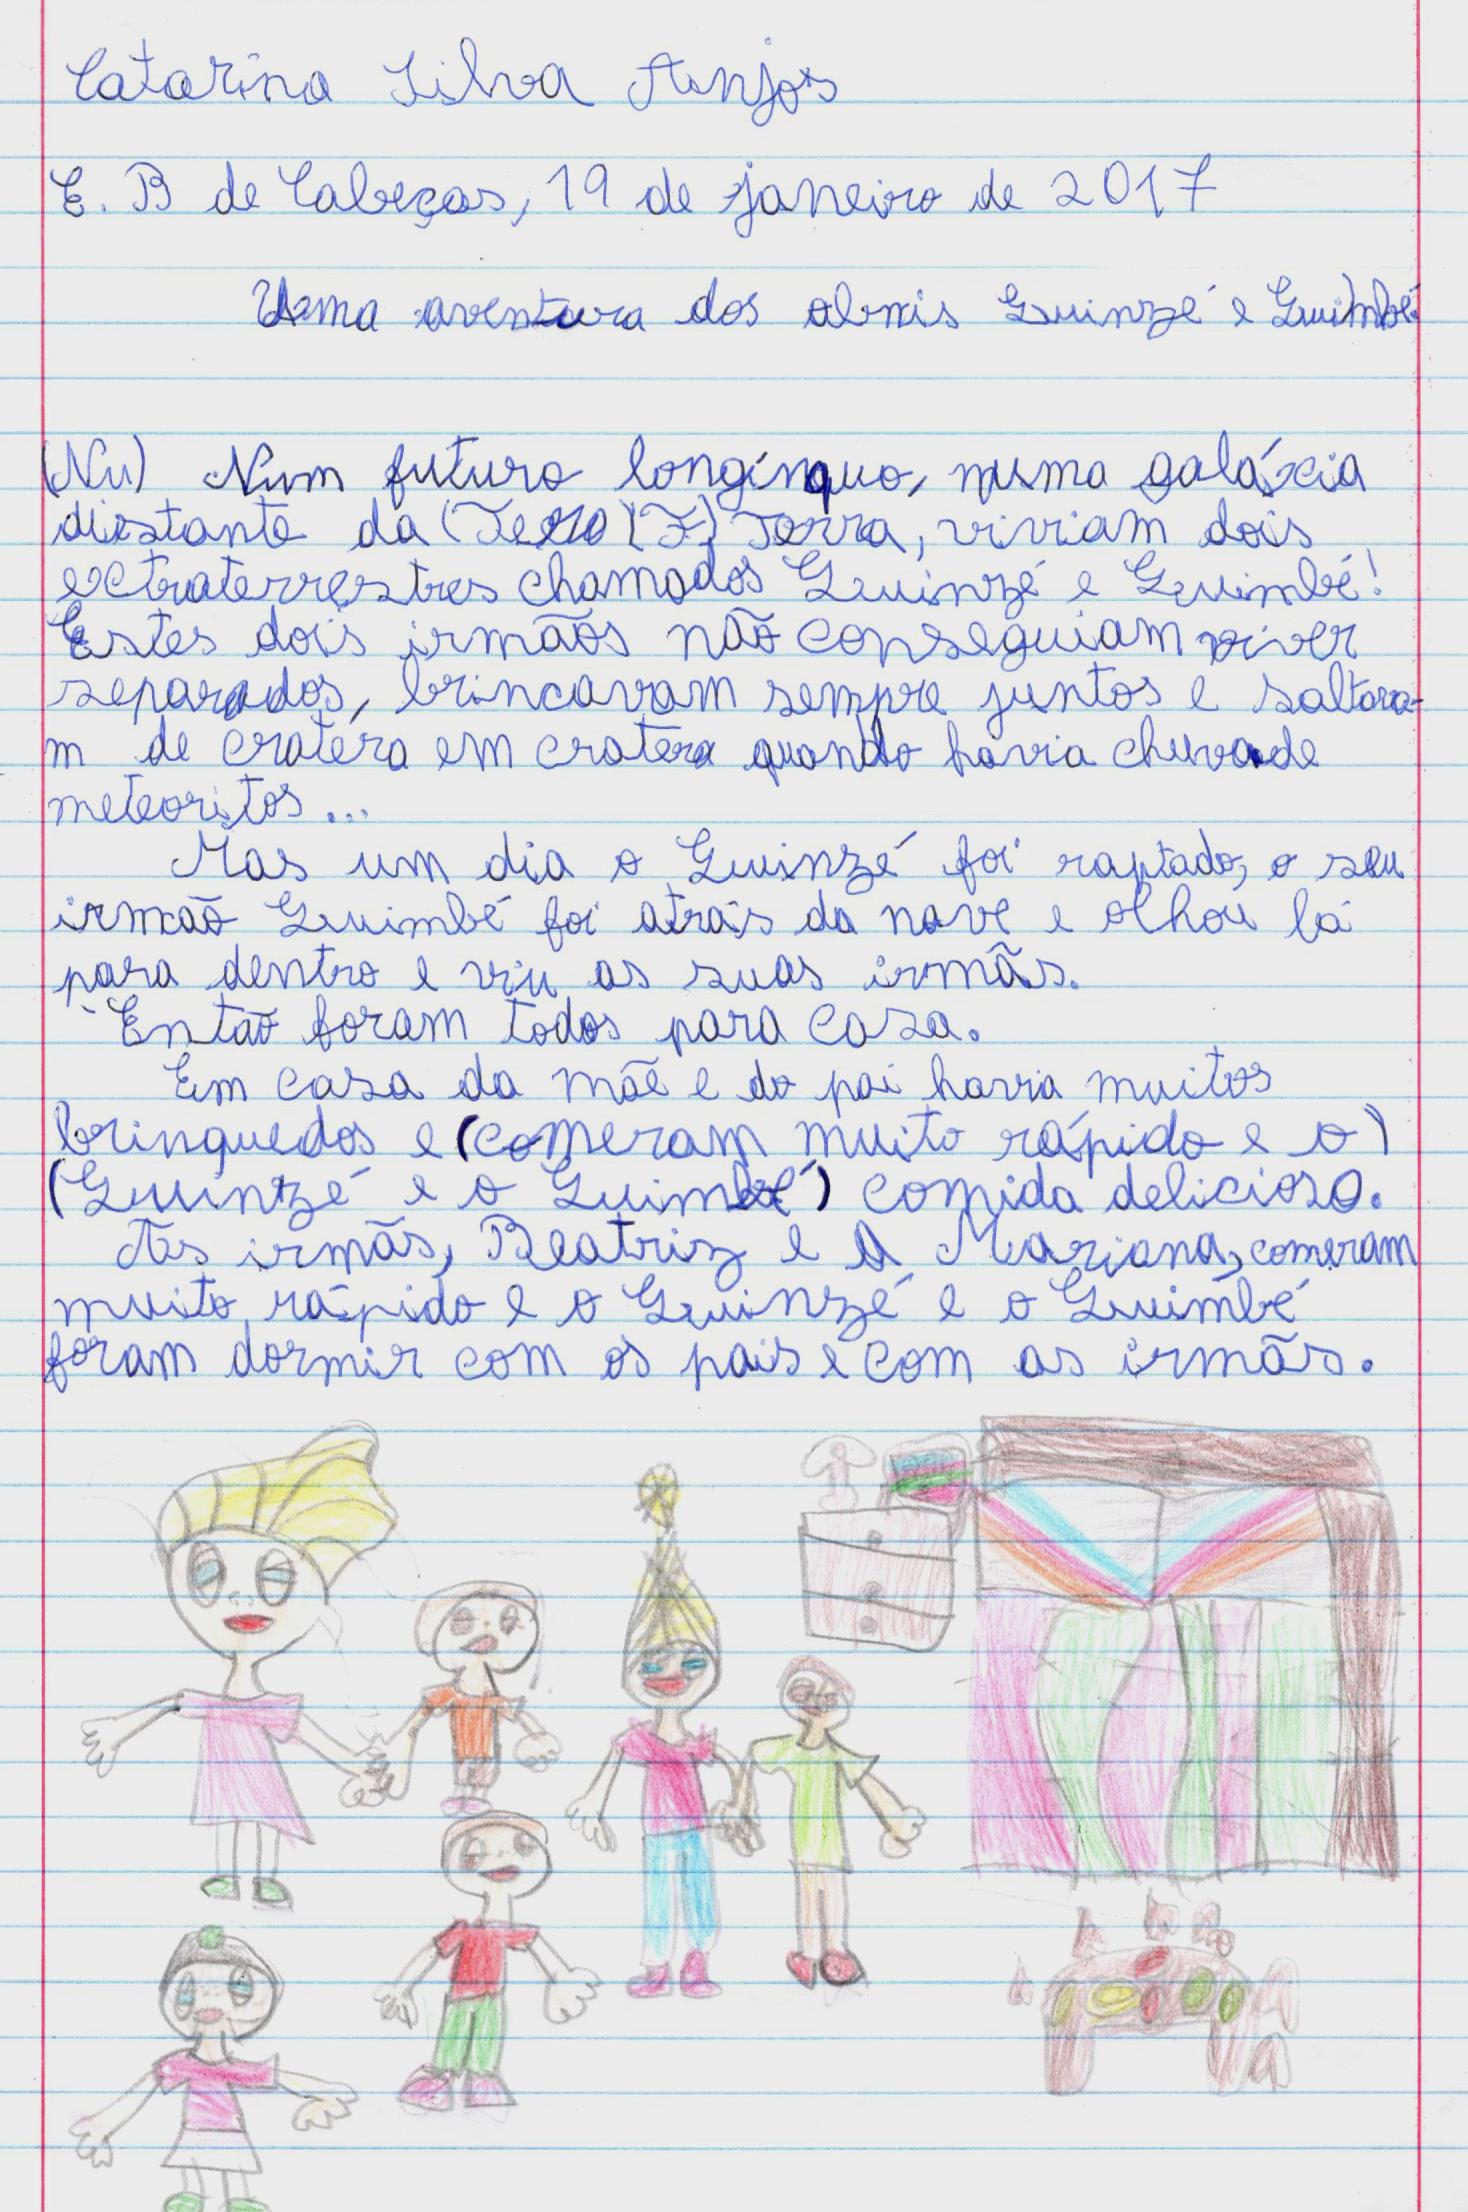 Catarina Silva Anjos
E. B de Cabeças, 19 de janeiro de 2017
Uma aventura dos Guinzé e Guimbé
(Nu) Num futuro longínquo, numa galáxia
distante da (Terra (T) Terra, viviam dois
extraterrestres chamados Guinzé e Guimbé!
Estes dois irmãos não conseguiam viver
separados, brincavam sempre juntos e saltava-
m de cratera em cratera quando havia chuva de
meteoritos...
Mas um dia o Guinzé foi raptado, o seu
irmão Guimbé foi atrás da nave e olhou lá
para dentro e viu as suas irmãs.
Então foram todos para casa.
Em casa da mãe e do pai havia muitos
brinquedos e (comeram muito rápido e o)
(Guintzé e o Guimbé) comida deliciosa.
As irmãs, Beatriz e a Mariana, comeram
muito rápido e o Guinzé e o Guimbé
foram dormir com os pais e com as irmãs.